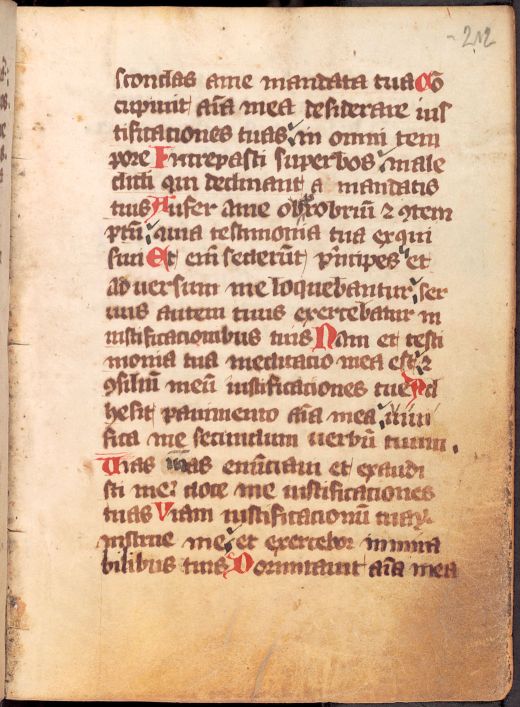 212
scondas a me mandata tua Cō
cupiuit aīa mea desiderare ius
tificationes tuas in omni tem
pore Increpasti superbos male
dicti qui declinant a mandatis
tuis Aufer a me obprobriū ⁊ ꝯtem
ptū quia testimonia tua exqui
siui Et em̄ sederūt principes et
aduersum me loquebantur ser
uus autem tuus exercebatur in
iustificationibus tuis Nam et testi
monia tua meditatio mea est ⁊
ꝯsiliū meū iustificationes tue Ad
hesit pauimento aīa mea uiui
fica me secundum uerbū tuum
Uias meas enūciaui et exaudi
sti me doce me iustificationes
tuas Viam iustificationū tuaꝝ
instrue me et exercebor in mira
bilibus tuis Dormitauit aīa mea